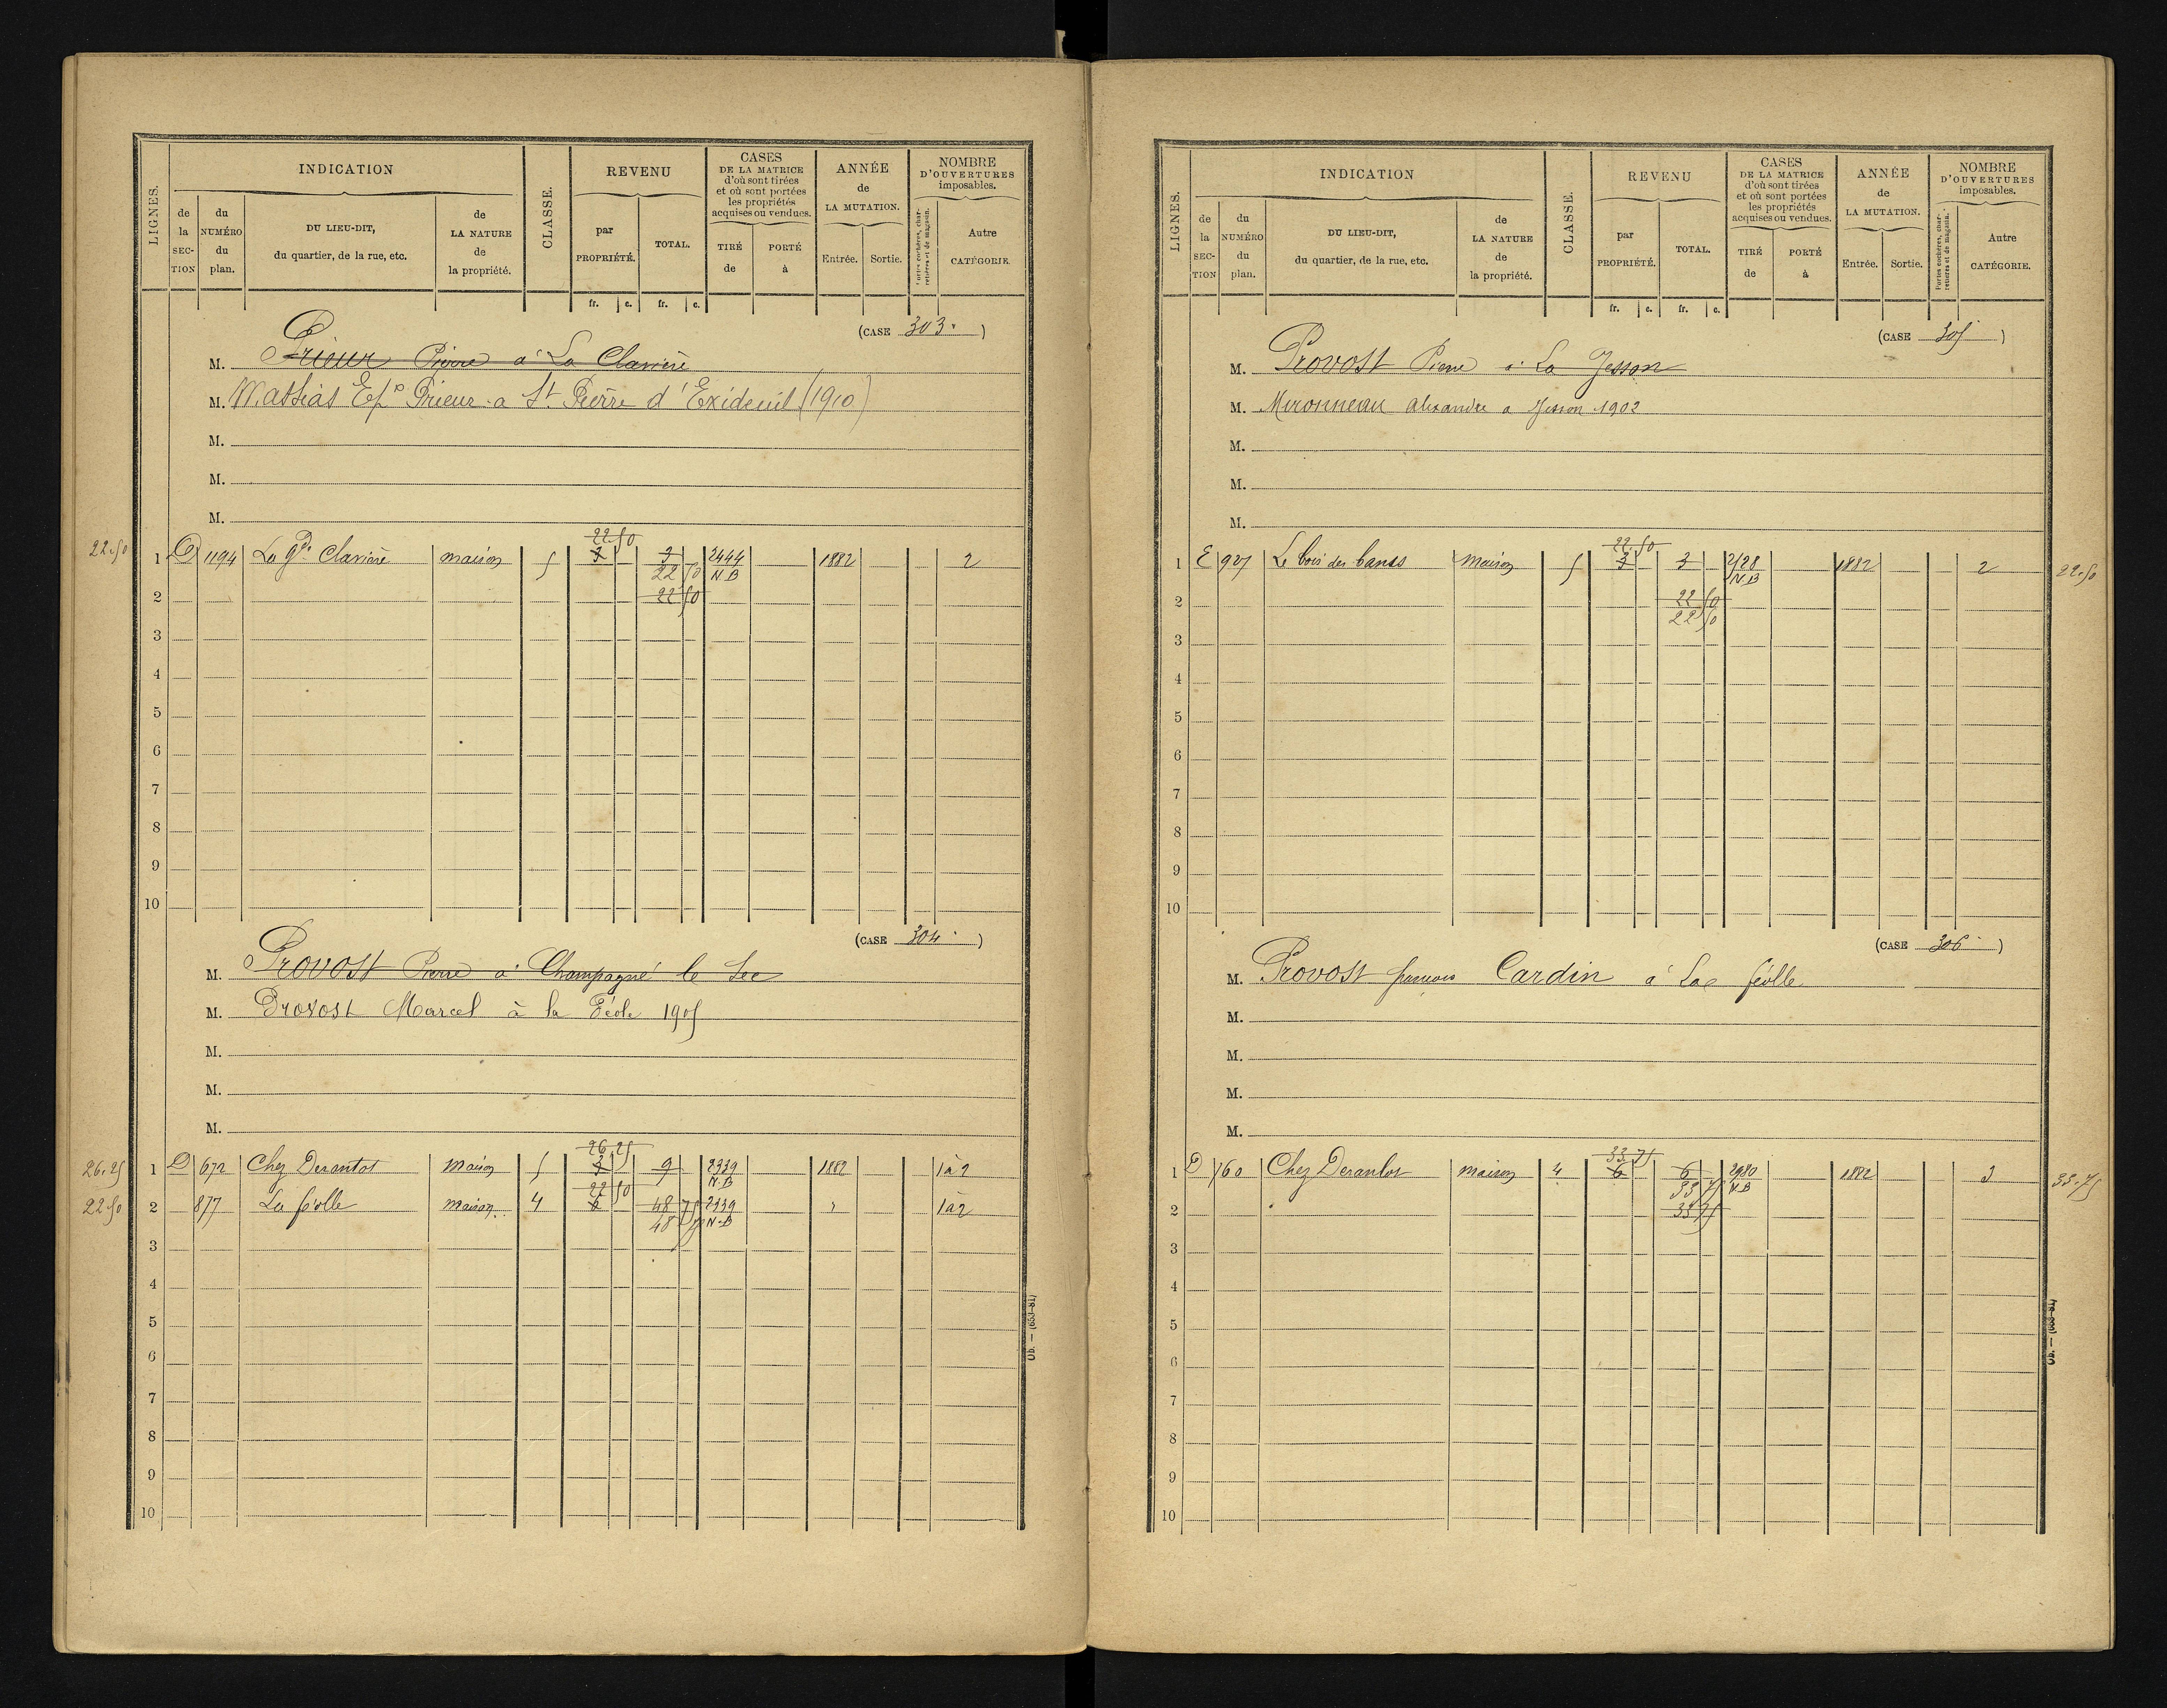 LIGNES.
INDICATION
de la SECTION
du NUMÉRO du plan.
DU LIEU-DIT, du quartier, de la rue, etc.
de LA NATURE de la propriété.
CLASSE.
REVENU
par PROPRIÉTÉ.
TOTAL.
fr. c. fr. c.
CASES DE LA MATRICE d'où sont tirées et où sont portées les propriétés acquises ou vendues.
TIRÉ de
PORTÉ à
ANNÉE de LA MUTATION.
Entrée. Sortie.
NOMBRE D'OUVERTURES imposables.
Portes cochères, charretières et de magasin.
Autre CATÉGORIE.
(CASE 303.)
M. Prieur Pierre à La Clavière
M. Massias Ep. Prieur a St Pierre d'Exideuil (1910)
M.
M.
M.
22.50
22.50
1 D 1194 La Gde Clavière maison 5 3 3 2444 1882 2
22 50 N B
2 22 50
3
4
5
6
7
8
9
10
(CASE 304.)
M. Provost Pierre à Champagné le Sec
M. Provost Marcel à la Féole 1905
M.
M.
M.
26.25
26.25 1 D 672 Chez Derantot maison 5 3 9 2339 1882 1 à 2
22 50 N.B
22.50 2 877 La féolle maison 4 6 48 75 2339 " 1 à 2
48 75 N-B
3
4
5
6
7
8
9
10
Ob. — (653-81)
LIGNES.
INDICATION
de la SECTION
du NUMÉRO du plan.
DU LIEU-DIT, du quartier, de la rue, etc.
de LA NATURE de la propriété.
CLASSE.
REVENU
par PROPRIÉTÉ.
TOTAL.
fr. c. fr. c.
CASES DE LA MATRICE d'où sont tirées et où sont portées les propriétés acquises ou vendues.
TIRÉ de
PORTÉ à
ANNÉE de LA MUTATION.
Entrée. Sortie.
NOMBRE D'OUVERTURES imposables.
Portes cochères, charretières et de magasin.
Autre CATÉGORIE.
(CASE 305)
M. Provost Pierre à La Jesson
M. Mironneau Alexandre a Jesson 1902
M.
M.
M.
22.50
1 E 927 Le bois des bancs maison 5 3 3 1882 2 22.50
N.B
2 22 50
22 50
3
4
5
6
7
8
9
10
(CASE 306.)
M. Provost francois Cardin à La féolle
M.
M.
M.
M.
33.75
1 D 760 Chez Derantot maison 4 6 6 2980 1882 3 33.75
33 75 N.B
2 33 75
3
4
5
6
7
8
9
10
Ob. — (653-81)